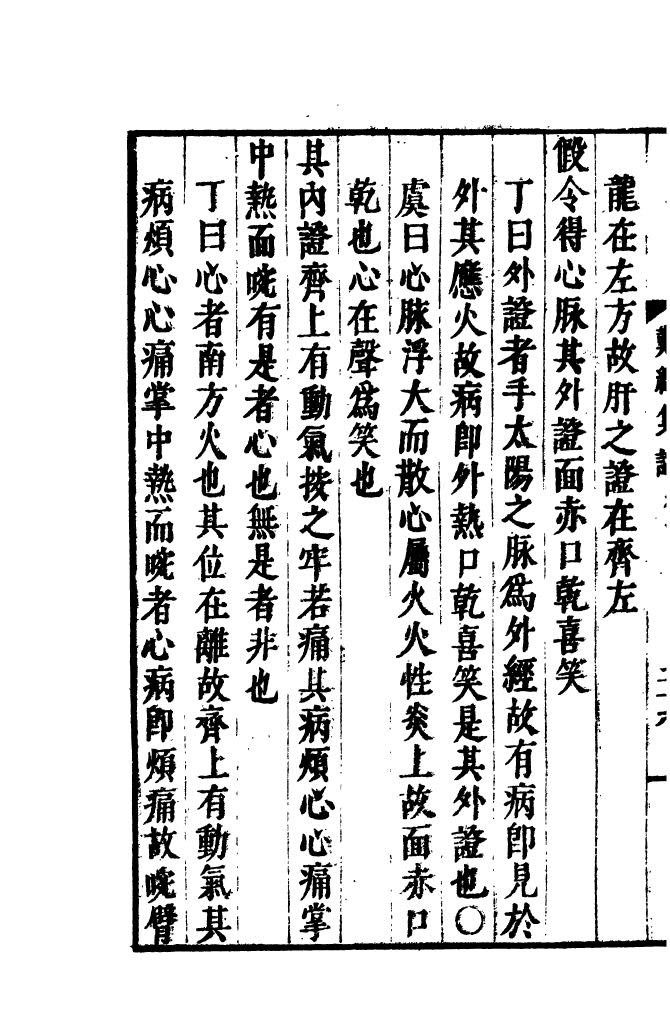 龍在左方故肝之證在齊左
假令得心脉其外證面赤口乾喜笑
丁曰外證者手太陽之脉爲外經故有病卽見於
外其應火故病卽外熱口乾喜笑是其外證也○
虞曰心脉浮大而散心屬火火性炎上故面赤口
乾也心在聲爲笑也
其內證齊上有動氣按之牢若痛其病煩心心痛掌
中熱而啘有是者心也無是者非也
丁曰心者南方火也其位在離故齊上有動氣其
病煩心心痛掌中熱而啘者心病卽煩痛故啘臂